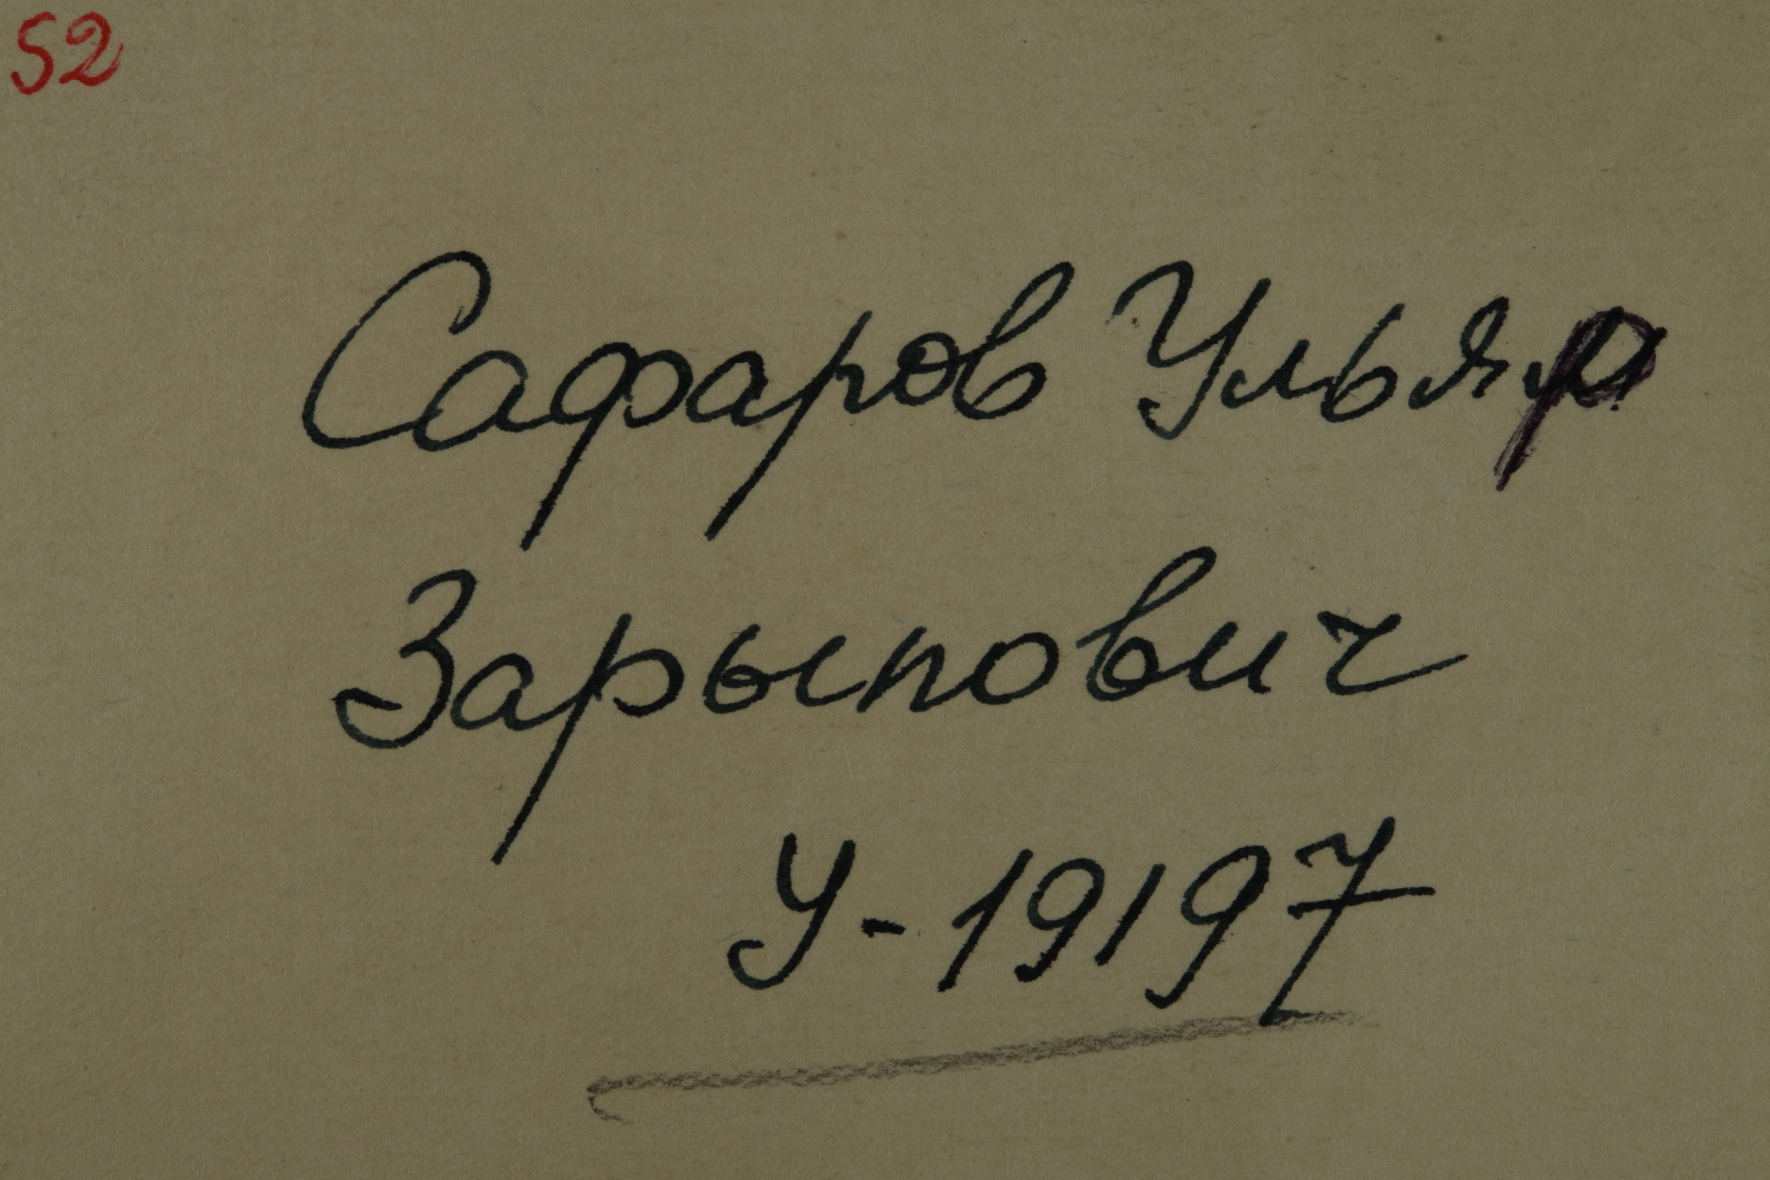 52
Сафаров Ульяр
Зарыпович
У-19197